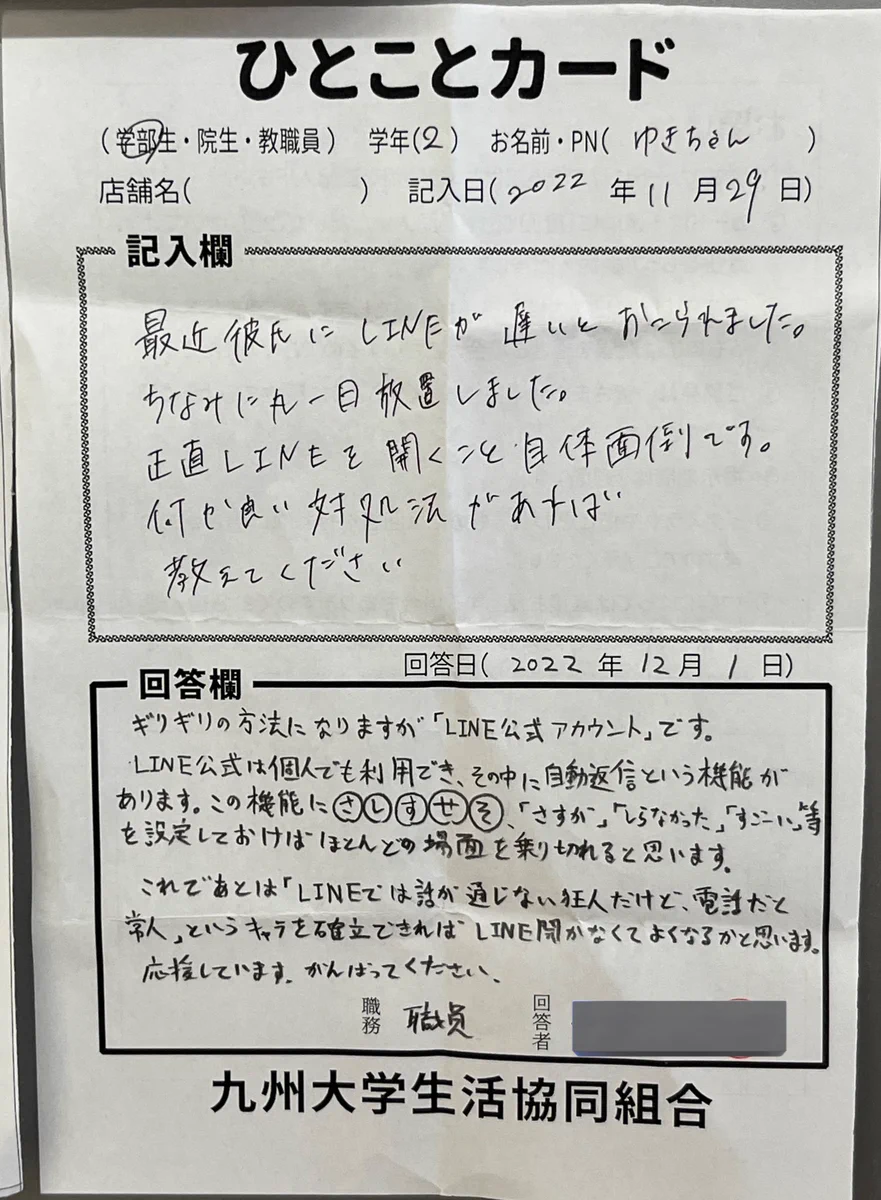 ひとことカード
(学部生・院生・教職員) 学年(2) お名前・PN(ゆきちゃん)
店舗名( ) 記入日(2022年11月29日)
記入欄
最近彼氏にLINEが遅いとおこられました。
ちなみに丸一日放置しました。
正直LINEを開くこと自体面倒です。
何か良い対処法があれば
教えてください
回答日(2022年12月1日)
回答欄
ギリギリの方法になりますが「LINE公式アカウント」です。
LINE公式は個人でも利用でき、その中に自動返信という機能が
あります。この機能にさしすせそ、「さすが」「しらなかった」「すごーい」等
を設定しておけばほとんどの場面を乗り切れると思います。
これであとは「LINEでは話が通じない狂人だけど、電話だと
常人」というキャラを確立できればLINE開かなくてよくなるかと思います。
応援しています。がんばってください、
職務 職員 回答者
九州大学生活協同組合